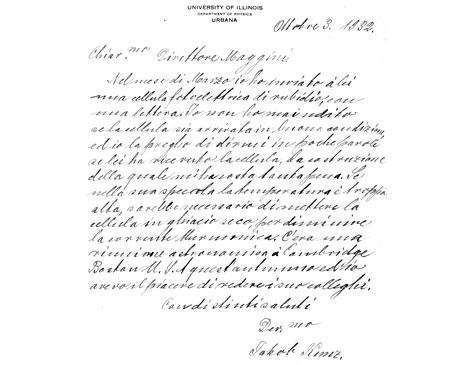 UNIVERSITY OF ILLINOIS
DEPARTMENT OF PHYSICS
URBANA
Ottobre 3. 1932.
Chiar.mo Direttore Maggini
Nel mese di Marzo io ho inviato à lei
una cellula fotoelettrica di rubidio, con
una lettera. Io non ho mai udito
se la cellula sia arrivata in buona condizione,
ed io la preglio di dirmi in poche parole
se lei ha ricevuto la cellula, la costruzione
della quale mi ha costa tanta pena. Se
nella sua specola la temperatura è troppa
alta, sarebbe necessario di mettere la
cellula in ghiacio seco, per diminuire
la corrente thurmonica. C'era una
riunione astronomica à Cambridge
Boston U.S.A quest autunno ed io
avevo il piacere di vedere i suo colleghi.
Con distinti saluti
Dev.mo
Jakob Kunz.